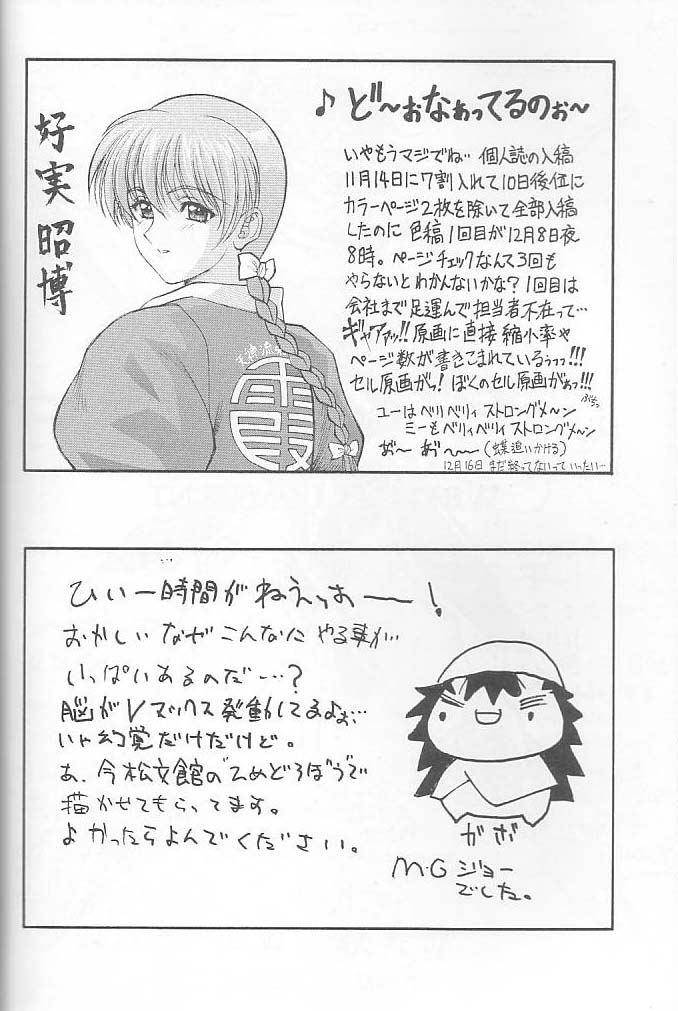 好実昭博
♪ ど〜ぉなぁってるのぉ〜
いやもうマジでね… 個人誌の入稿
11月14日に7割入れて10日後位に
カラーページ2枚を除いて全部入稿
したのに 色稿1回目が12月8日夜
8時。ページチェックなんて3回も
やらないとわかんないかな?1回目は
会社まで足運んで担当者不在って…
ギャアァッ!!原画に直接縮小率や
ページ数が書きこまれているぅっっ!!!
セル原画がッ!ぼくのセル原画がぁっ!!!
ユーはベリベリィ ストロングメ〜ン
ミーもベリィベリィ ストロングメ〜ン
お〜 お〜〜 (蝶追いかける)
12月16日 まだ終ってないっていったい…
霞
ひぃー時間がねえっおーー!
おかしい なぜこんなに やる事が…
いっぱいあるのだ…?
脳がVマックス発動してるよぉ…
いや幻覚だけだけど。
あ、今松文館の"ひめどろぼう"で
描かせてもらってます。
よかったらよんでください。
がお
M・G ジョー
でした。